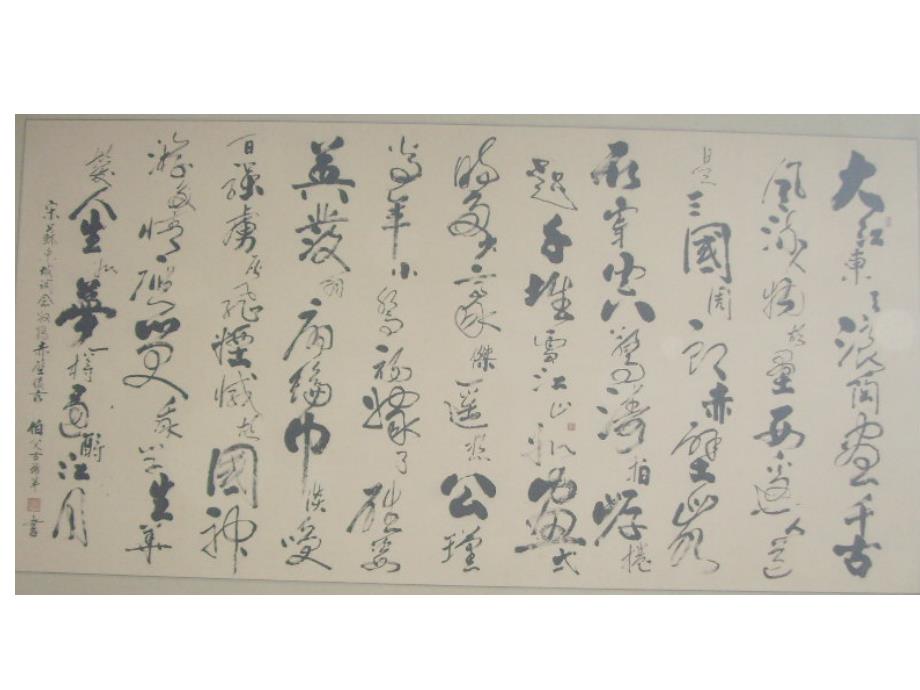 大江東去浪淘盡千古
風流人物故壘西邊人道
是三國周郎赤壁亂
石穿空驚濤拍岸捲
起千堆雪江山如畫一
時多少豪傑遙想公瑾
當年小喬初嫁了雄姿
英發羽扇綸巾談笑
間強虜灰飛煙滅故國神
遊多情應笑我早生華
髮人生如夢一樽還酹江月
宋蘇東坡詞念奴嬌赤壁懷古 書